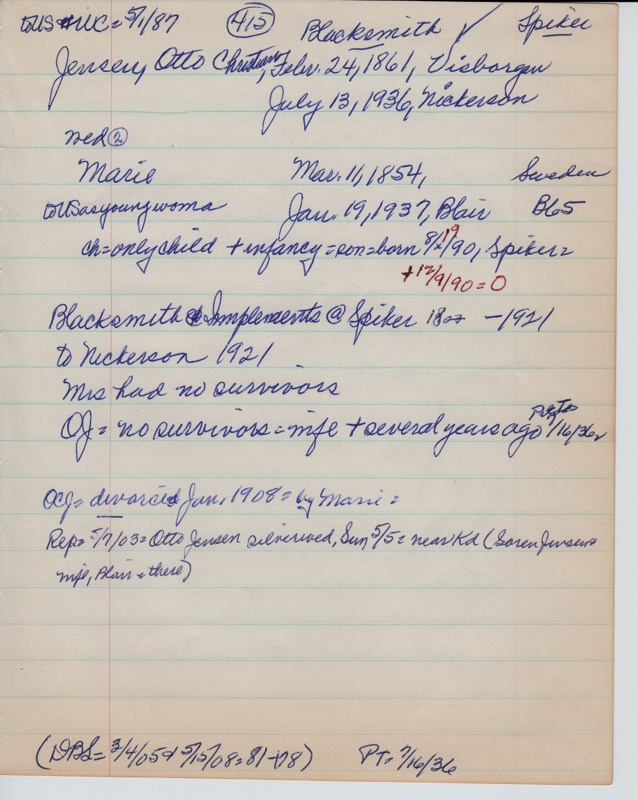 to US & WC = 5/1/87 (415) Blacksmith ✓ Spiker
Jensen, Otto Christian, Febr. 24, 1861, Visborgen
July 13, 1936, Nickerson
wed ②
Marie Mar. 11, 1854, Sweden
to US as young woma Jan. 19, 1937, Blair B65
ch = only child + infancy = son = born 8/19/90, Spiker =
+ 12/9/90 = 0
Blacksmith & Implements @ Spiker 18 - 1921
to Nickerson 1921
Mrs had no survivors
OJ = no survivors = wife + several years ago 7/16/36
OCJ = divorced Jan. 1908 = by Marie =
Rep = 5/7/03 = Otto Jensen Sun 5/5 = near Kd (Soren Jensen &
wife, Blair = there)
(DBS = 3/4/05 & 5/15/08 = 81 + 78) PT = 7/16/36